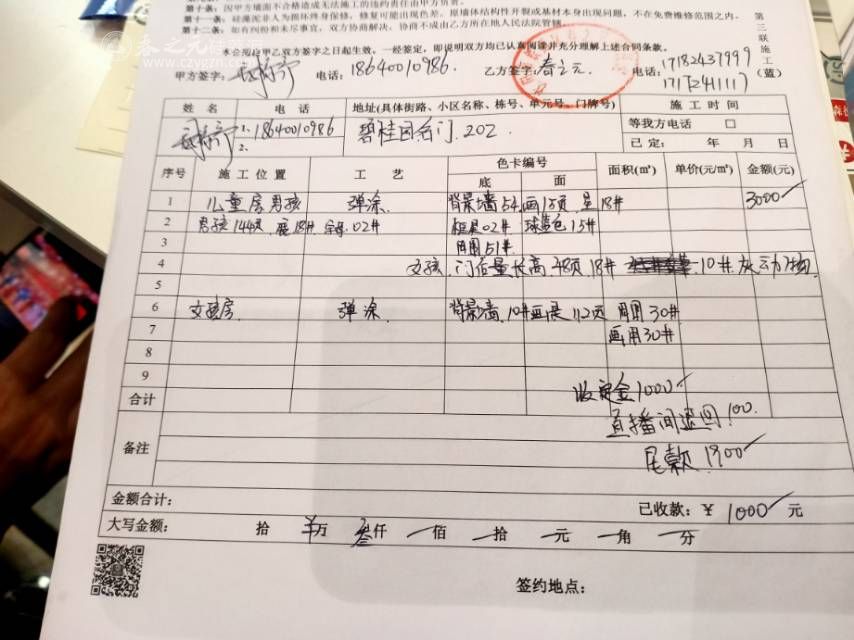 第十条、因甲方墙面不合格造成无法施工的违约责任由甲方负责。
第十一条、硅藻泥非人为损坏终身保修，修复可能出现色差。原墙体结构性开裂或基材本身出现问题，不在免费维修范围之内。
第十二条、如有纠纷和未尽事宜，双方协商解决、协商不成由乙方所在地人民法院管辖。
本合同经甲乙双方签字之日起生效、一经签定，即说明双方均已认真阅读并充分理解上述合同条款。
www.czygzn.com
第三联施工(蓝)
甲方签字： 电话：18640010986. 乙方签字：春之元 电话：17182437999
17172411117
姓名 电话 地址(具体街路、小区名称、栋号、单元号、门牌号) 施工时间
1.18640010986 碧桂园 202. 等我方电话 □
2. 已定： 年 月 日
序号 施工位置 工艺 色卡编号 面积(㎡) 单价(元/㎡) 金额(元)
底 面
1 儿童房男孩 弹涂 背景墙54 画15页 18# 3000
2 男孩144页 18# 02# 02# 15#
3 周围51#
4 女孩 门后量长高 48页 18# 10# 灰动物
5
6 女孩房 弹涂 背景墙 10# 112页 周围30#
7 画用30#
8
9
合计 收定金1000
直播间返回100.
备注 尾款 1900
金额合计： 已收款：￥ 1000 元
大写金额： 拾 万 叁仟 佰 拾 元 角 分
签约地点：